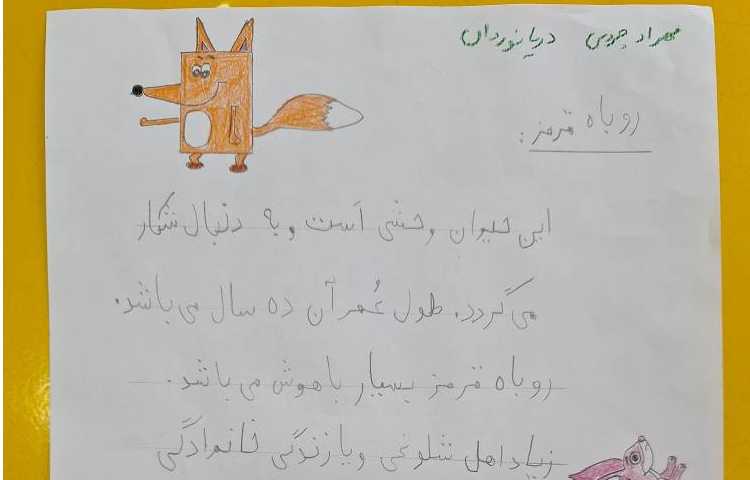 مهراد عروس دریانوردان
روباه قرمز:
این حیوان وحشی اَست و به دنبال شکار
می گردد. طول عُمر آن ده سال می باشد.
روباه قرمز بسیار باهوش می باشد.
زیاد اهل شلوغی و یا زندگی خانوادگی